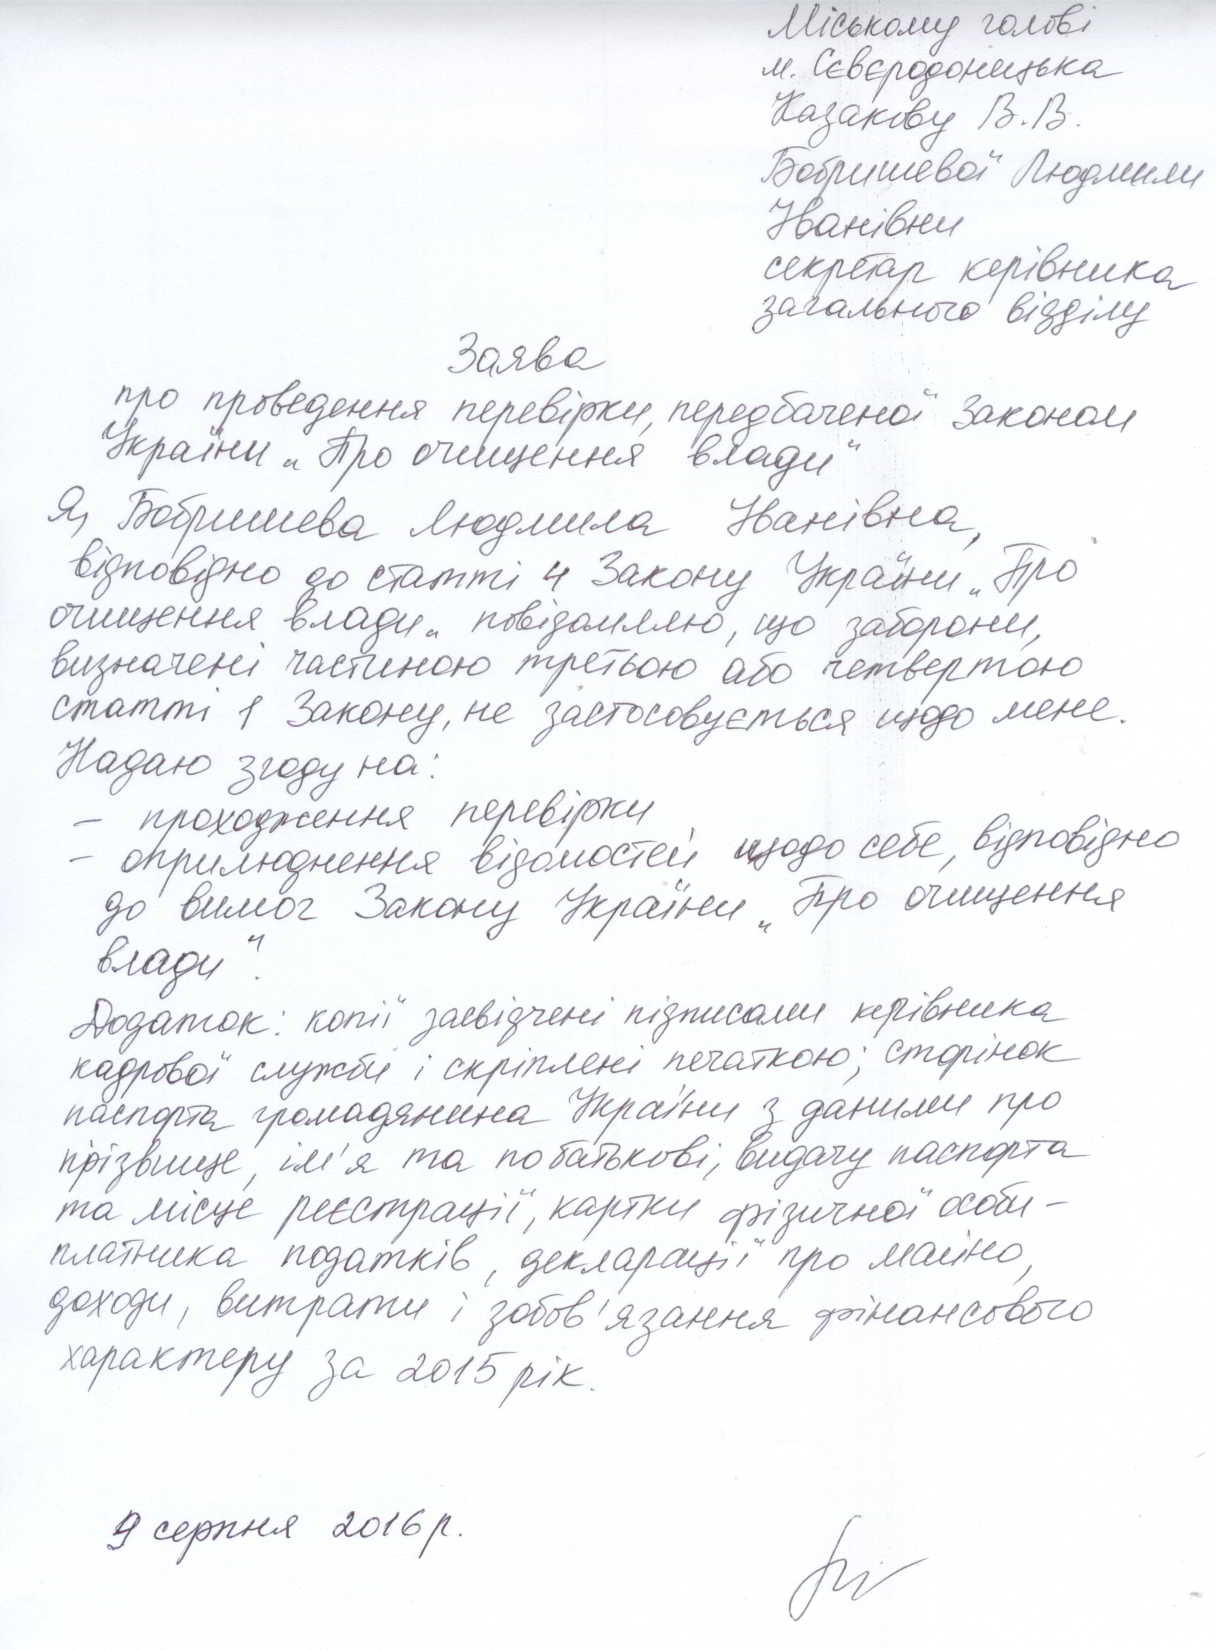 Міському голові
м. Сєвєродонецька
Казакову В.В.
Бобришевої Людмили
Іванівни
секретар керівника
загального відділу
Заява
про проведення перевірки, передбаченої Законом
України „Про очищення влади"
Я, Бобришева Людмила Іванівна,
відповідно до статті 4 Закону України „Про
очищення влади„ повідомляю, що заборони,
визначені частиною третьою або четвертою
статті 1 Закону, не застосовується щодо мене.
Надаю згоду на:
– проходження перевірки
– оприлюднення відомостей щодо себе, відповідно
до вимог Закону України „Про очищення
влади".
Додаток: копії засвідчені підписами керівника
кадрової служби і скріплені печаткою; сторінок
паспорта громадянина України з даними про
прізвище, ім'я та по батькові, видачу паспорта
та місце реєстрації, картки фізичної особи –
платника податків, декларації про майно,
доходи, витрати і зобов'язання фінансового
характеру за 2015 рік.
9 серпня 2016 р.